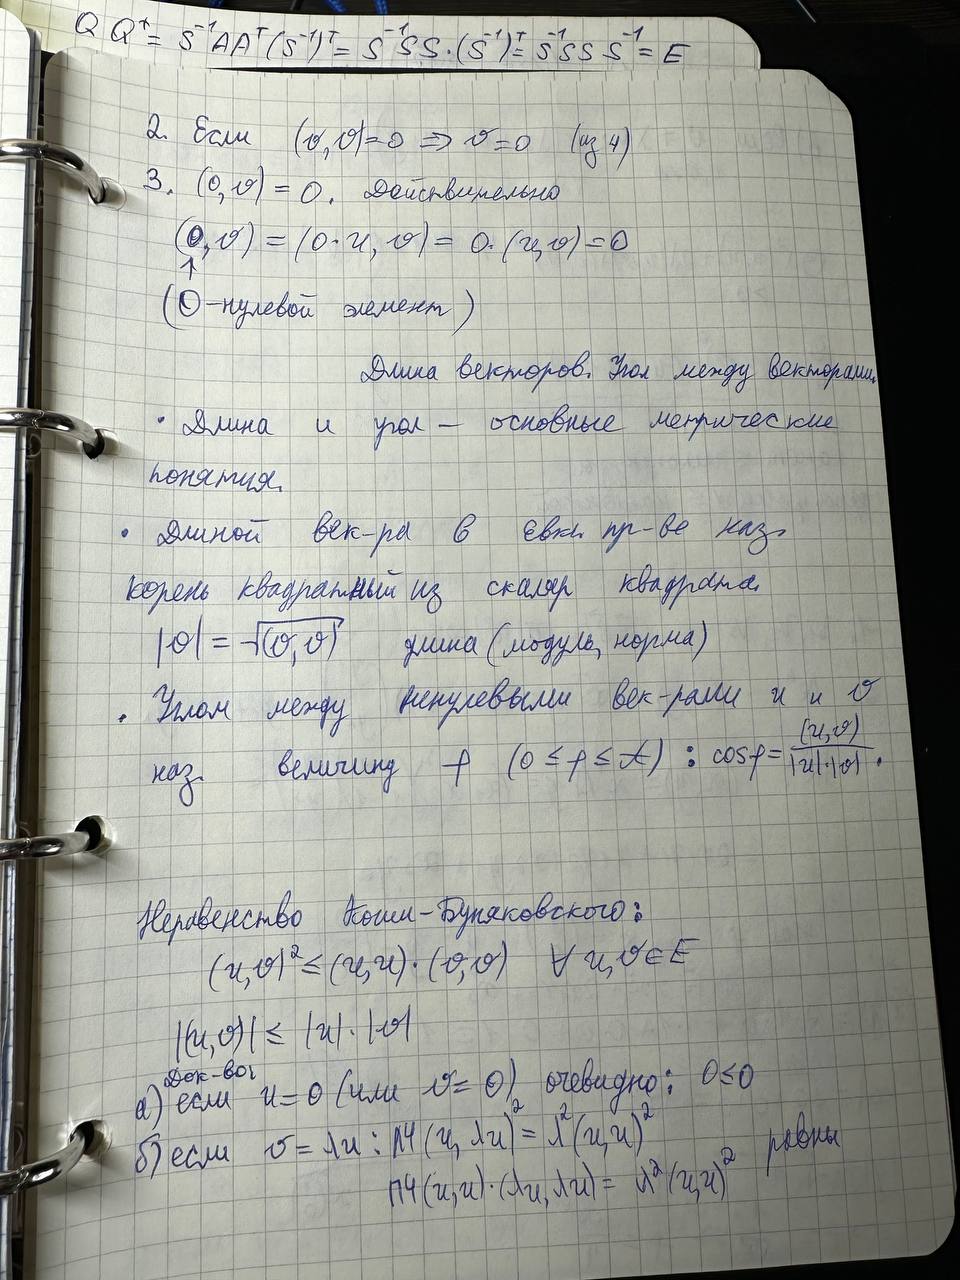 Q Qᵀ = S⁻¹AAᵀ(S⁻¹)ᵀ = S⁻¹SS·(S⁻¹)ᵀ = S⁻¹SS S⁻¹ = E
2. Если (v,v)=0 ⇒ v=0 (из 4)
3. (0,v) = 0. Действительно
(0,v) = (0·u, v) = 0·(u,v) = 0
↑
(0-нулевой элемент)
Длина векторов. Угол между векторами.
· Длина и угол – основные метрические
понятия.
· Длиной век-ра в евкл. пр-ве наз.
корень квадратный из скаляр квадрата.
|v| = √(v,v) длина (модуль, норма)
· Углом между ненулевыми век-рами u и v
наз. величину φ (0 ≤ φ ≤ π) : cosφ = (u,v)/|u|·|v|.
Неравенство Коши-Буняковского:
(u,v)² ≤ (u,u)·(v,v) ∀ u,v ∈ E
|(u,v)| ≤ |u|·|v|
Док-во:
а) если u=0 (или v=0) очевидно: 0≤0
б) если v=λu : ЛЧ (u,λu)² = λ²(u,u)² равны
ПЧ (u,u)·(λu,λu) = λ²(u,u)²